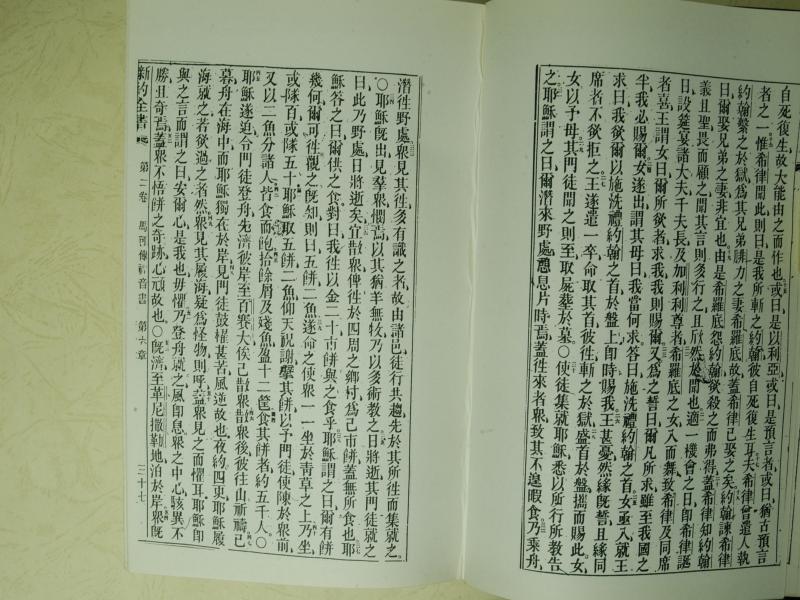 自死復生故大能由之而作也或曰是以利亞或曰是預言者或曰猶古預言
者之一惟希律聞此則曰是我所斬之約翰彼自死復生耳夫希律曾遣人執
約翰繫之於獄爲其兄弟腓力之妻希羅底故蓋希律已娶之矣約翰諫希律
曰爾娶兄弟之妻非宜也由是希羅底怨約翰欲殺之而弗得蓋希律知約翰
義且聖畏而顧之聞其言則多行之且欣然於聞也適一機會之日卽希律誕
日設筵宴諸大夫千夫長及加利利尊者希羅底之女入而舞致希律及同席
者喜王謂女曰爾所欲者求我我則賜爾又爲之誓曰爾凡所求雖至我國之
半我必賜爾女遂出謂其母曰我當何求答曰施洗禮約翰之首女亟入就王
求曰我欲爾以施洗禮約翰之首於盤上卽時賜我王甚憂然緣旣誓且緣同
席者不欲拒之王遂遣一卒命取其首彼往斬之於獄盛首於盤攜而賜此女
女以予母其門徒聞之則至取屍葬於墓〇使徒集就耶穌悉以所行所教告
之耶穌謂之曰爾潛來野處憩息片時焉蓋往來者衆致其不遑暇食乃乘舟
潛往野處衆見其往多有識之者故由諸邑徒行共趨先於其所往而集就之
〇耶穌旣出見羣衆憫焉以其猶羊無牧乃以多術教之日將逝其門徒就之
曰此乃野處日將逝矣宜散衆俾往於四周之鄉村爲己市餅蓋無所食也耶
穌答之曰爾供之食對曰我往以金二十市餅與之食乎耶穌謂之曰爾有餅
幾何爾可往觀之旣知則曰五餅二魚遂命之使衆一一坐於靑草之上乃坐
或隊百或隊五十耶穌取五餅二魚仰天祝謝擘其餅以予門徒使陳於衆前
又以二魚分諸人皆食而飽拾餘屑及殘魚盈十二筐食其餅者約五千人〇
耶穌遂迫令門徒登舟先濟彼岸至百賽大俟己散衆旣散衆後彼往山祈禱已
暮舟在海中而耶穌獨在於岸見門徒鼓櫂甚苦風逆故也夜約四更耶穌履
海就之若欲過之者然衆見其履海疑爲怪物則呼蓋衆見之而懼耳耶穌卽
與之言而謂之曰安爾心是我也毋懼乃登舟就之風卽息衆之中心駭異不
勝且奇焉蓋衆不悟餅之奇跡心頑故也〇旣濟至革尼撒勒地泊於岸衆旣
新約全書 第二卷 馬可傳福音書 第六章 三十七